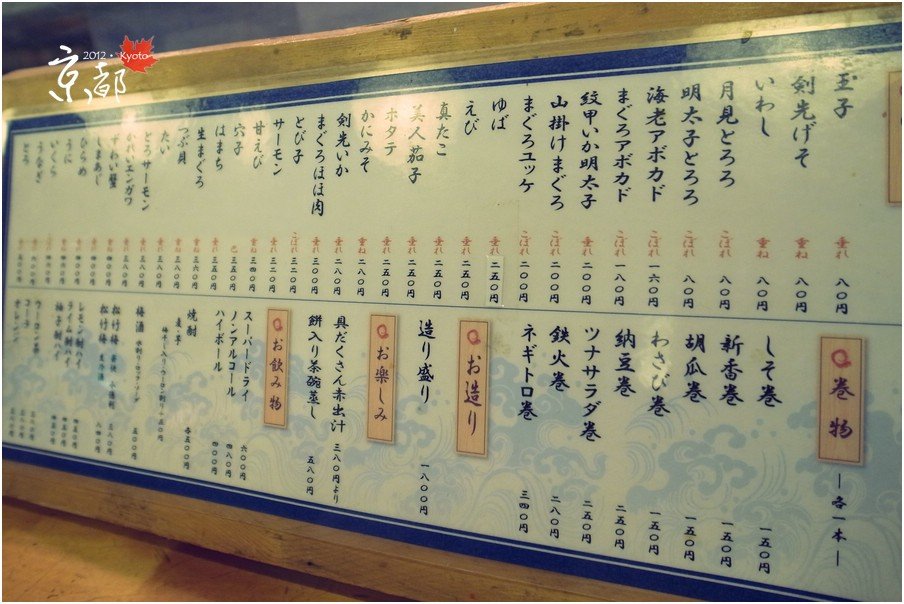 2012・Kyoto
京都
玉子 垂れ 八〇円
剣光げそ 重ね 八〇円
いわし 重ね 八〇円
月見とろろ こぼれ 八〇円
明太子とろろ こぼれ 八〇円
海老アボカド こぼれ 一六〇円
まぐろアボカド こぼれ 一八〇円
紋甲いか明太子 垂れ 二〇〇円
山掛けまぐろ こぼれ 二〇〇円
まぐろユッケ こぼれ 二〇〇円
ゆば 垂れ 二五〇円
えび 垂れ 二五〇円
真たこ 垂れ 二五〇円
美人茄子 垂れ 二五〇円
ホタテ 垂れ 二五〇円
かにみそ 重ね 二八〇円
剣光いか 垂れ 二八〇円
まぐろほほ肉 垂れ 三〇〇円
とび子 こぼれ 三二〇円
サーモン 垂れ 三二〇円
甘えび 重ね 三四〇円
穴子 三五〇円
はまち 垂れ 三五〇円
生まぐろ 重ね 三六〇円
つぶ貝 重ね 三八〇円
たい 垂れ 三八〇円
とろサーモン 垂れ 三八〇円
かれいエンガワ 垂れ 三八〇円
ずわい蟹
しまあじ
ひらめ
うに
いくら
うなぎ
とろ
巻物 ー各一本ー
しそ巻 一五〇円
新香巻 一五〇円
胡瓜巻 一五〇円
わさび巻 一五〇円
納豆巻 二五〇円
ツナサラダ巻 二五〇円
鉄火巻 二八〇円
ネギトロ巻 三四〇円
お造り
造り盛り 一八〇〇円
お楽しみ
具だくさん赤出汁 三八〇円より
餅入り茶碗蒸し 五八〇円
お飲み物
スーパードライ 六〇〇円
ノンアルコール 四八〇円
ハイボール 四〇〇円
焼酎
麦・芋 各五〇〇円
梅酒 五〇〇円
松竹梅
松竹梅
レモン酎ハイ
ライム酎ハイ
柚子酎ハイ
ウーロン茶
コーラ
オレンジ